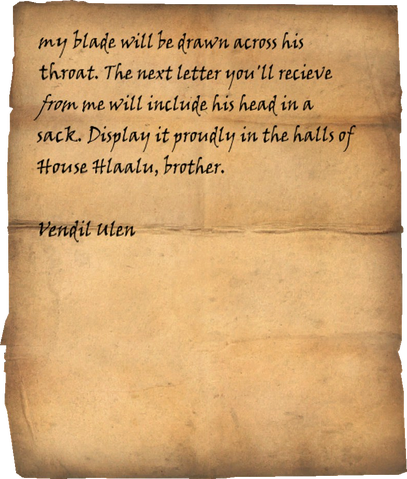 my blade will be drawn across his
throat. The next letter you'll recieve
from me will include his head in a
sack. Display it proudly in the halls of
House Hlaalu, brother.
Vendil Ulen